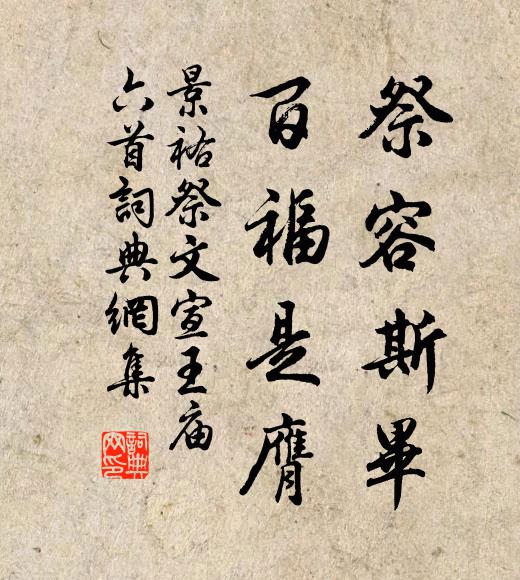 祭容斯畢
百福是膺
景祐祭文宣王庙
六首詞典網集
詞典網印